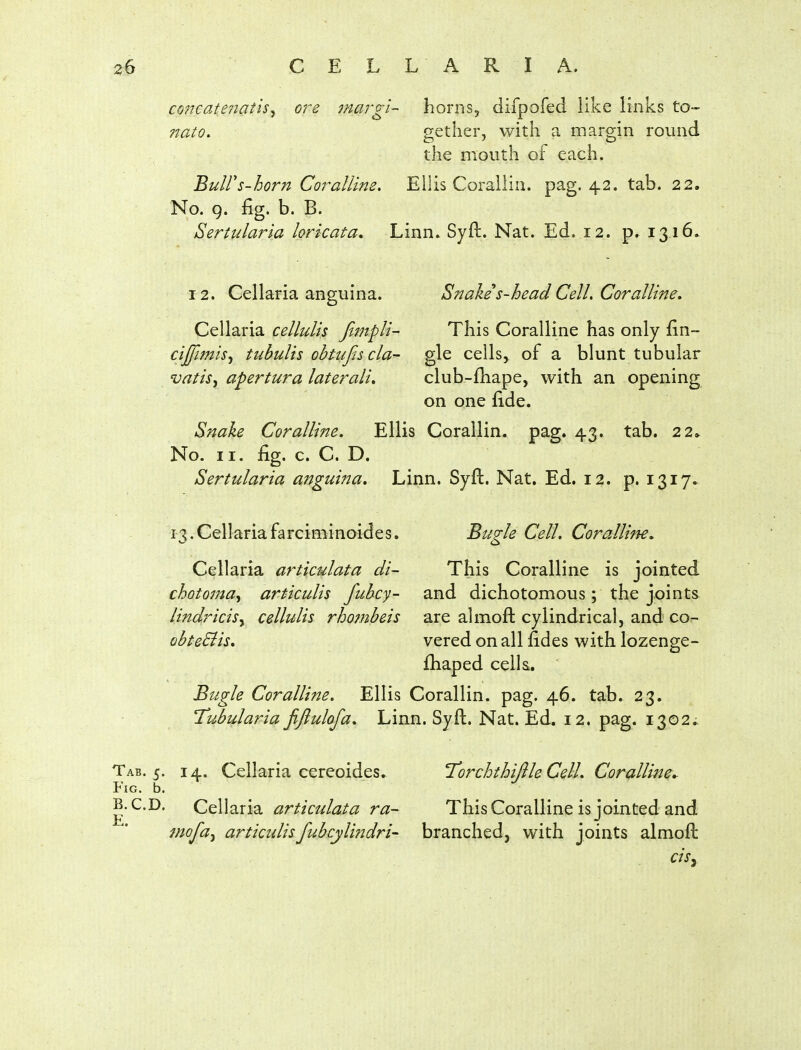 26 CELLARIA.
concatenatis, ore margi- horns, difpofed like links to-
nato. gether, with a margin round
the mouth of each.
Bull's-horn Coralline. Ellis Corallin. pag. 42. tab. 22.
No. 9. fig. b. B.
Sertularia loricata. Linn. Syft. Nat. Ed. 12. p. 1316.
12. Cellaria anguina. Snake's-head Cell. Coralline.
Cellaria cellulis fimpli- This Coralline has only fin-
ciffimis, tubulis obtufis cla- gle cells, of a blunt tubular
vatis, apertura laterali. club-fhape, with an opening
on one fide.
Snake Coralline. Ellis Corallin. pag. 43. tab. 22.
No. 11. fig. c. C. D.
Sertularia anguina. Linn. Syft. Nat. Ed. 12. p. 1317.
13. Cellaria farciminoides. Bugle Cell. Coralline.
Cellaria articulata di- This Coralline is jointed
chotoma, articulis fubcy- and dichotomous; the joints
lindricis, cellulis rhombeis are almoft cylindrical, and co-
obtectis. vered on all fides with lozenge-
fhaped cells.
Bugle Coralline. Ellis Corallin. pag. 46. tab. 23.
Tubularia fiftulofa. Linn. Syft. Nat. Ed. 12. pag. 1302.
Tab. 5. 14. Cellaria cereoides. Torchthiftle Cell. Coralline.
Fig. b.
B.C.D. Cellaria articulata ra- This Coralline is jointed and
E.
mofa, articulis fubcylindri- branched, with joints almoft
cis,